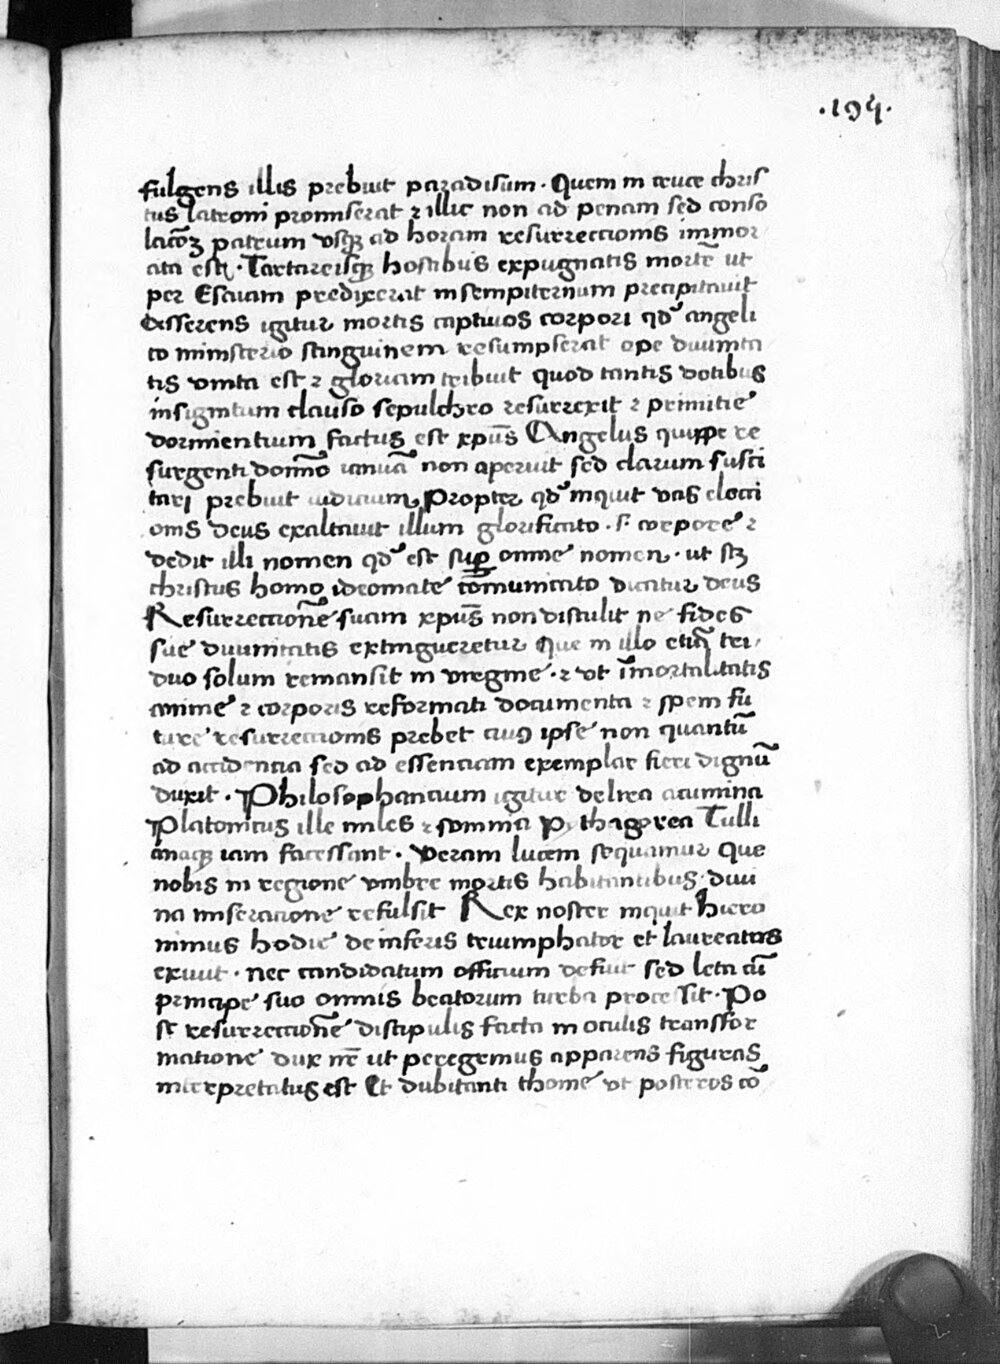 .194.
fulgens illis prebuit paradisum · Quem in cruce chris
tus latroni promiserat ⁊ illic non ad penam sed conso
lacōꝫ patrum vsqꝫ ad horam resurreccionis immor
ata est · Tartareisqꝫ hostibus expugnatis mortē ut
per Esaiam predixerat in sempiternum precipitauit
Asserens igitur mortis captiuos corpori qd angeli
co ministerio sanguinem resumpserat ope diuinita
tis vnita est ⁊ gloriam tribuit quod tantis dotibus
insignitum clauso sepulchro resurrexit ⁊ primitie
dormientium factus est xpūs Angelus quippe re
surgenti domīo ianuā non aperuit sed clarum susci
tati prebuit iudicium Propter qd inquit vas elecci
onis deus exaltauit illum glorificato · s. corpore ⁊
dedit illi nomen qd est sup omne nomen · ut sꝫ
christus homo ideomate cōmunicato dicatur deus
Resurreccionē suam xpūs non distulit ne fides
sue diuinitatis extingueretur Que in illo etiā tri
duo solum remansit in virgine · ⁊ vt īmortalitatis
anime ⁊ corporis reformati documenta ⁊ spem fu
ture resurreccionis prebet cuiꝰ ipse non quantū
ad accidencia sed ad essenciam exemplar fieri dignū
duxit · Philosophancium igitur delira acumina
Platonicus ille miles ⁊ somnia Pythagorea Tulli
anaqꝫ iam facessant · Veram lucem sequamur Que
nobis in regione vmbre mortis habitantibus diui
na miseracione refulsit Rex noster inquit hiero
nimus hodie de inferis triumphator et laureatus
exiuit · nec candidatum officium defuit sed leta cū
principe suo omnis beatorum turba processit · Po
st resurreccionē discipulis facta in oculis transfor
matione dux nr̄e ut peregrinus apparens figuras
interpretatus est Et dubitanti thome vt posteros cō